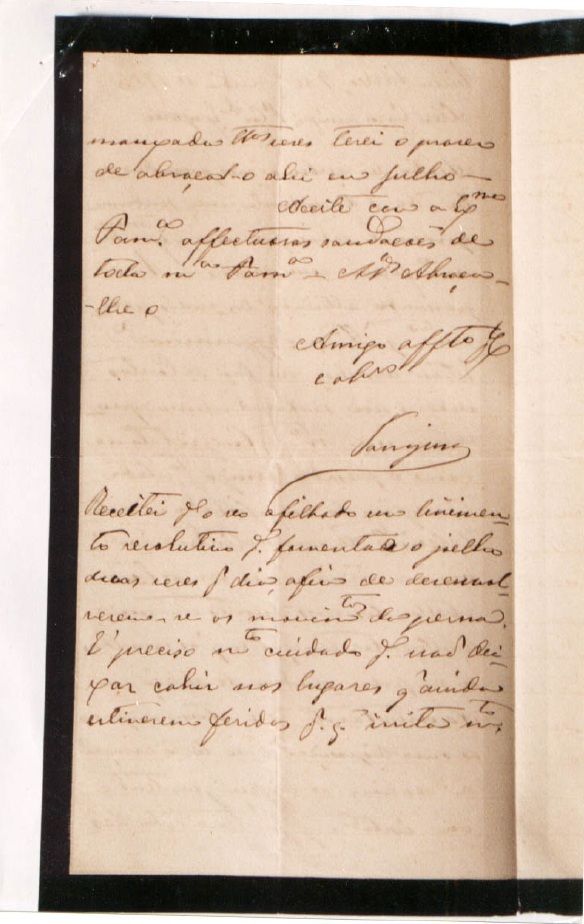 terei o prazer
de abraçal-o ahi em Julho—
Acceite com a Exma
Famª affectuosas saudações de
toda mª Famª — Abraça-
-lhe o
Amigo affto
e obro
Receitei pª o seo afilhado um linimen-
to resolutivo pª fomentar o joelho
duas veses pr dia, afim de desenvol-
verem-se os movimtos da perna.
É preciso mto cuidado pª naõ dei-
xar cahir nos lugares q' ainda
estiverem feridos pr q' irrita mto